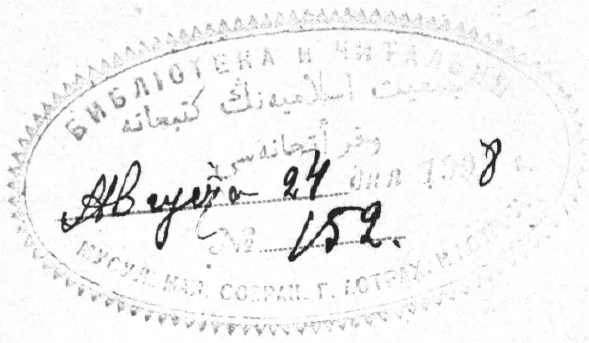 БИБЛІОТЕКА И ЧИТАЛЬНЯ
جمعيت اسلاميه نڭ كتبخانه
وقرأتخانه سى
Августа 24 дня 1908 г.
№ 152.
МУСУЛ. МАЛ. СОБРАН. Г. АСТРАХ.